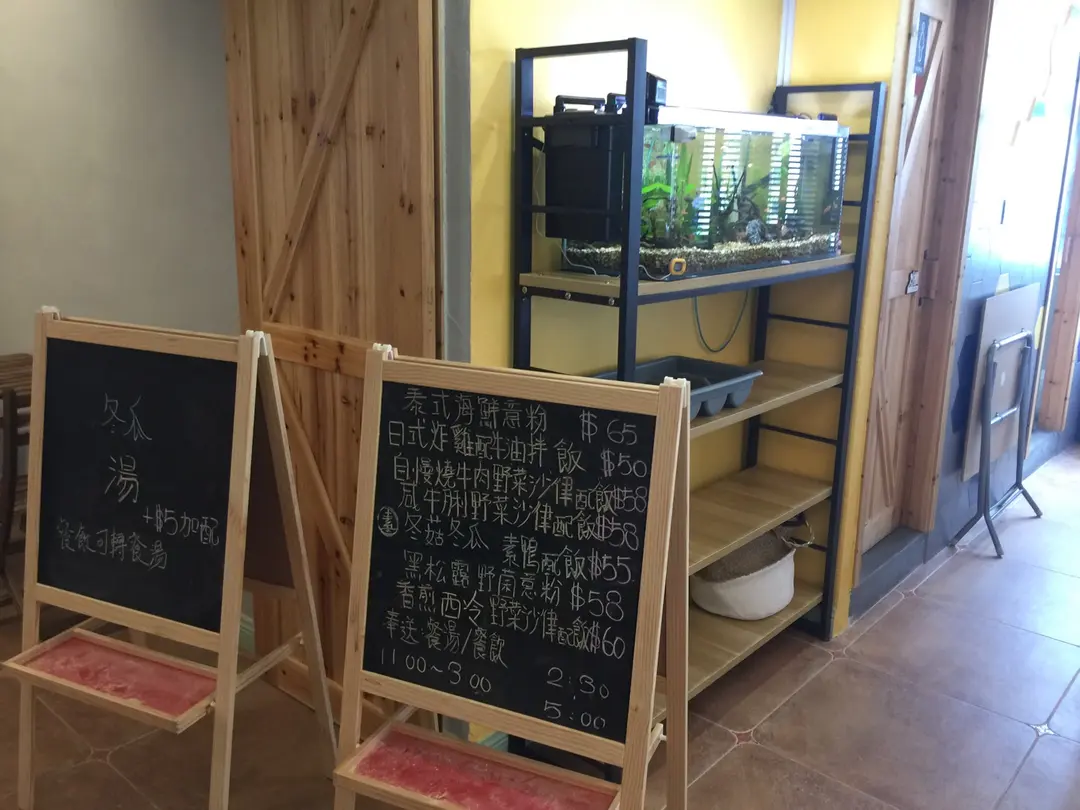 冬瓜
湯
+$5加配
餐飲可轉餐湯
泰式海鮮意粉 $65
日式炸雞配牛油拌飯 $50
自慢燒牛肉野菜沙律配飯$58
牛脷野菜沙律配飯$58
素 冬菇冬瓜 素鴨配飯$55
黑松露野菌意粉 $58
香煎西冷野菜沙律配飯$60
奉送餐湯/餐飲
11:00~3:00 2:30
5:00